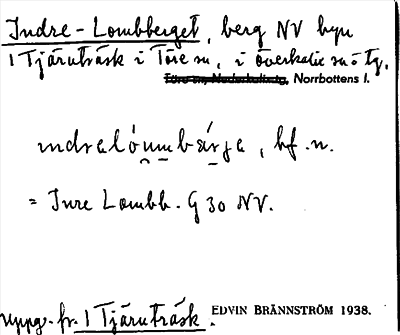 Indre-Lombberget, berg NV byn
1 Tjäruträsk i Töre sn, i Överkalix sn o tg,
Töre sn, Nederkalix tg, Norrbottens l.
indralómbärja, bf. n.
= Inre Lombb. G 30 NV.
uppg. fr. 1 Tjäruträsk.
EDVIN BRÄNNSTRÖM 1938.